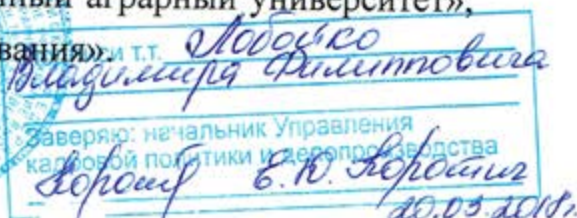 ный аграрный университет»,
вания».
и т.т. Лобойко
Владимира Филипповича
Заверяю: начальник Управления
кадровой политики и делопроизводства
Е.Ю. Коротич
20.03.2018г.